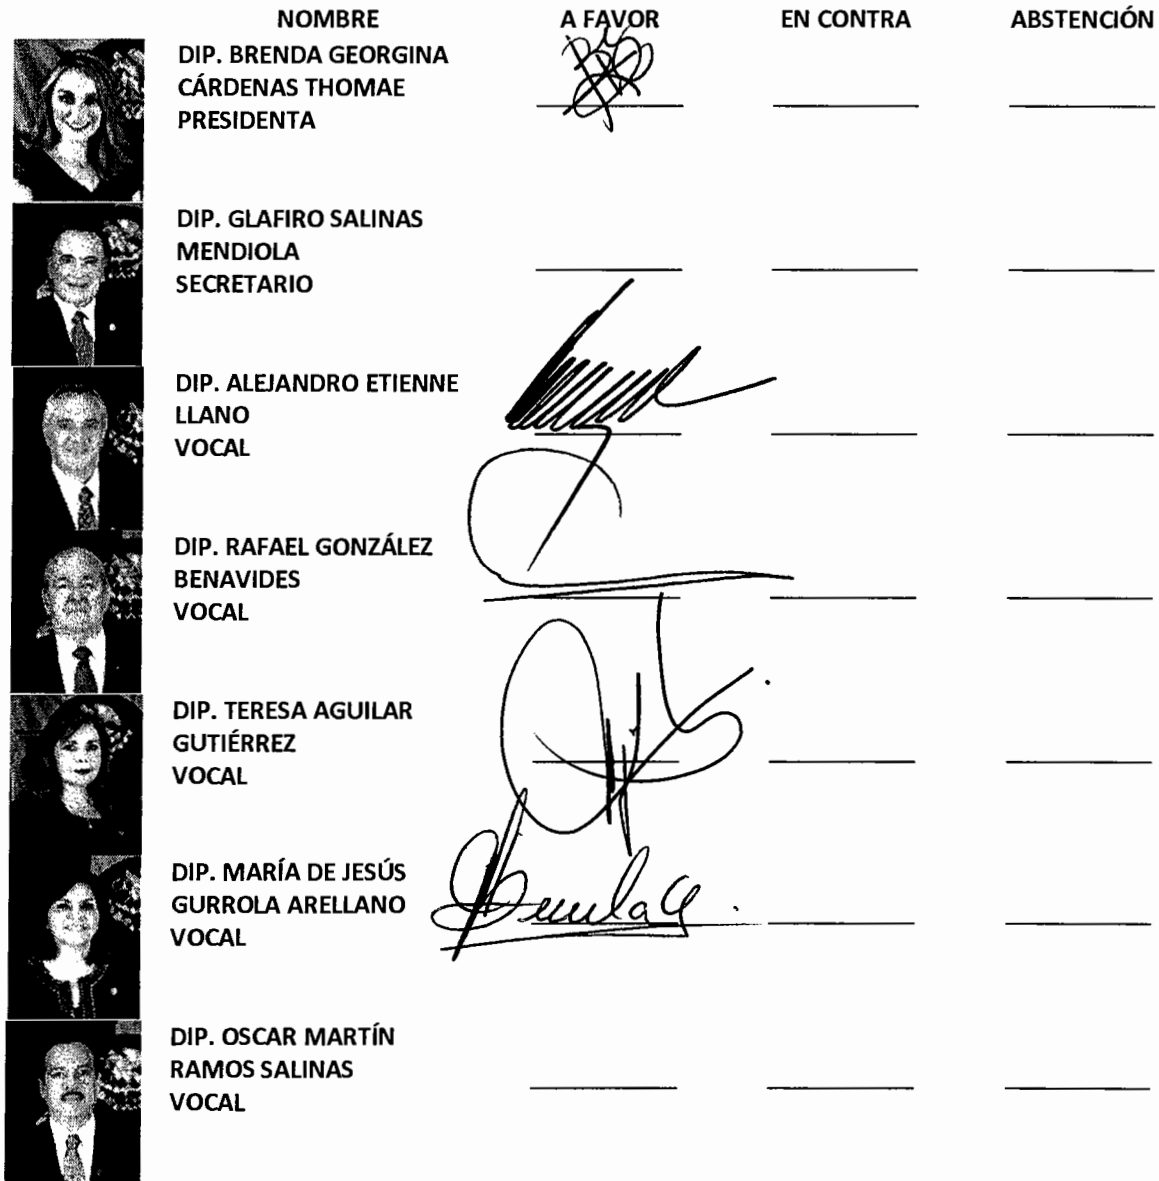 NOMBRE A FAVOR EN CONTRA ABSTENCIÓN
DIP. BRENDA GEORGINA
CÁRDENAS THOMAE
PRESIDENTA
DIP. GLAFIRO SALINAS
MENDIOLA
SECRETARIO
DIP. ALEJANDRO ETIENNE
LLANO
VOCAL
DIP. RAFAEL GONZÁLEZ
BENAVIDES
VOCAL
DIP. TERESA AGUILAR
GUTIÉRREZ
VOCAL
DIP. MARÍA DE JESÚS
GURROLA ARELLANO
VOCAL
DIP. OSCAR MARTÍN
RAMOS SALINAS
VOCAL